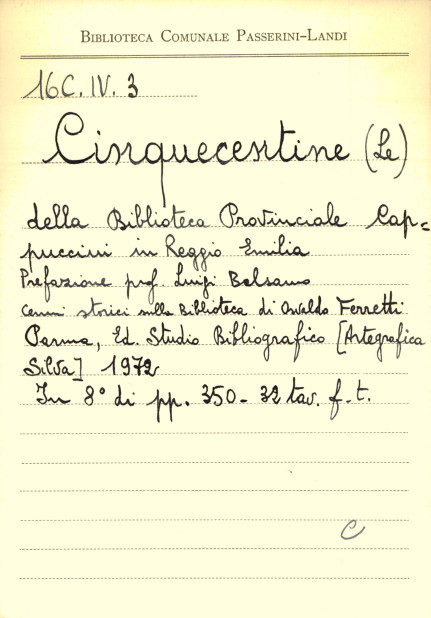 BIBLIOTECA COMUNALE PASSERINI-LANDI
16C. IV. 3
Cinquecentine (Le)
della Biblioteca Provinciale Cap=
puccini in Reggio Emilia
Prefazione prof. Luigi Balsamo
Cenni storici sulla Biblioteca di Osvaldo Ferretti
Parma, Ed. Studio Bibliografico [Artegrafica
Silva] 1972
In 8° di pp. 350 - 32 tav. f. t.
C